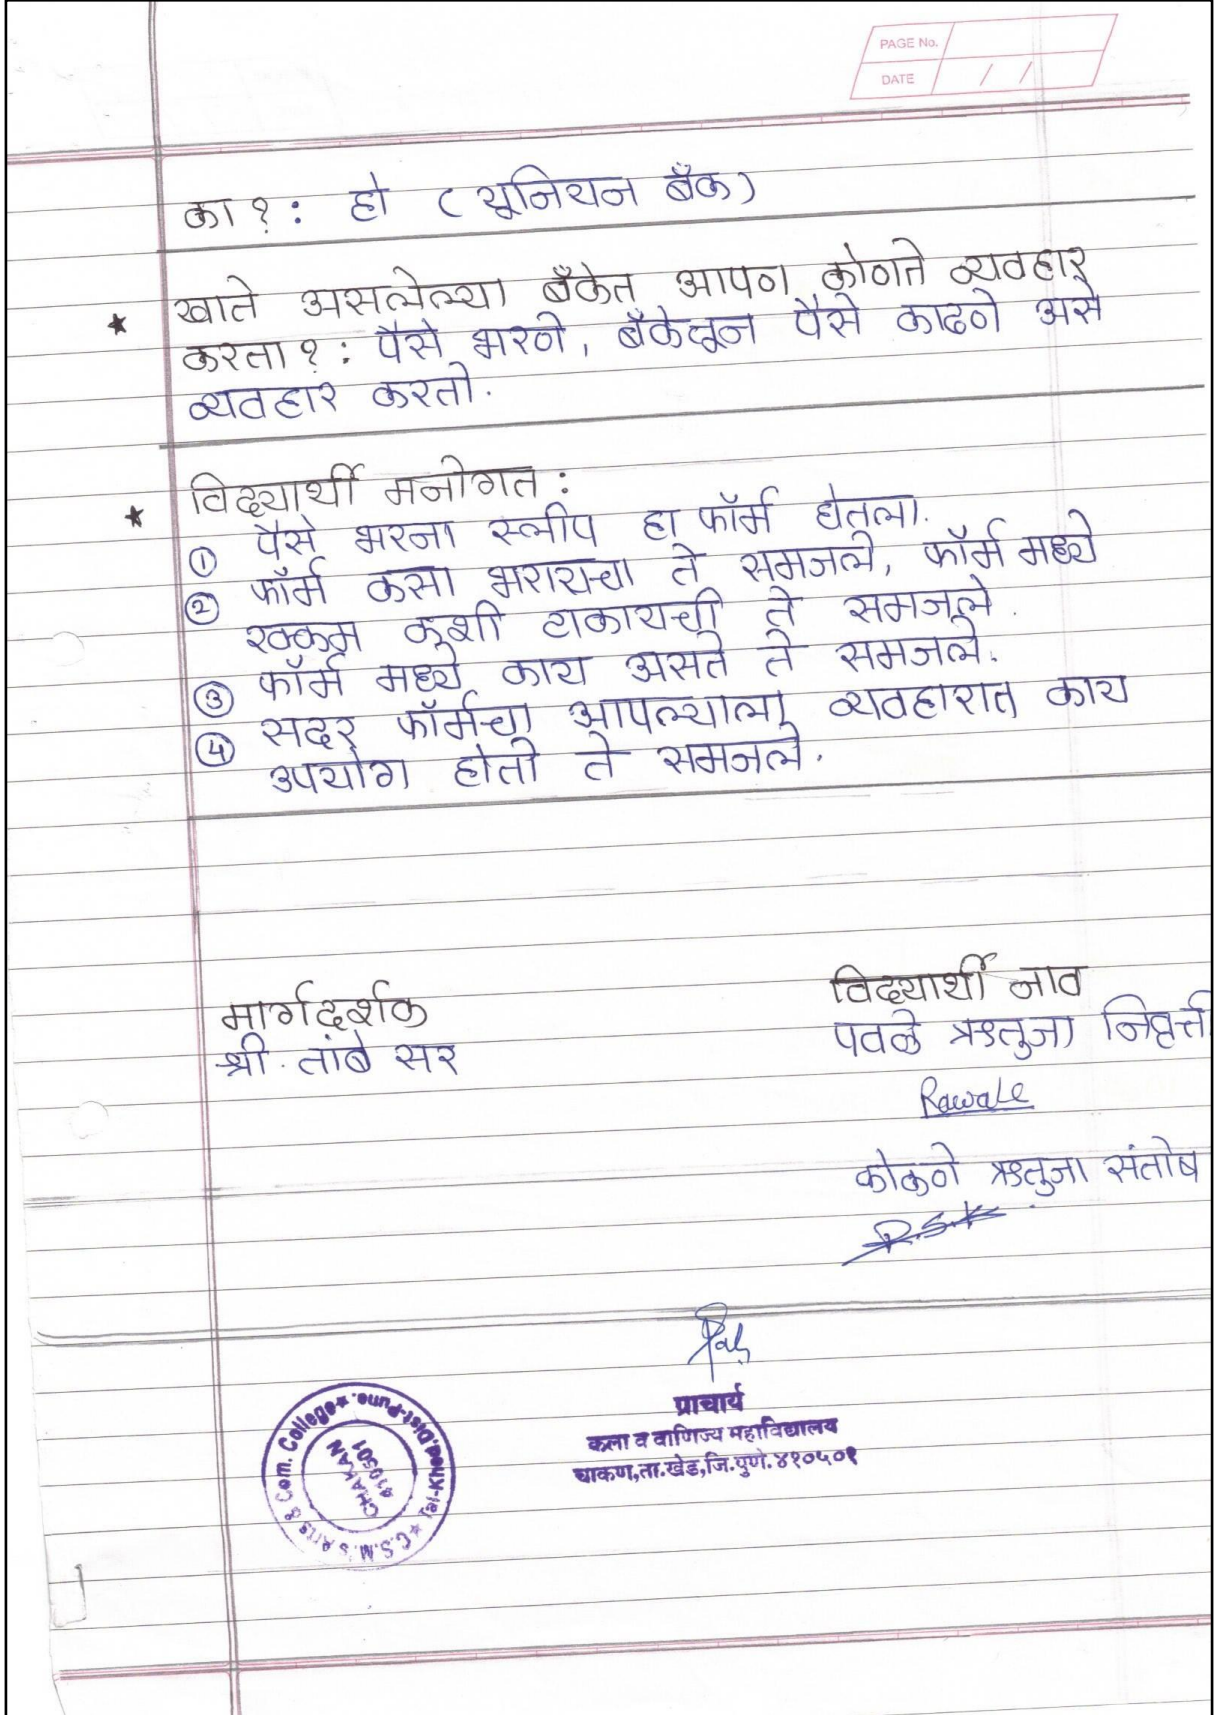 PAGE No.
DATE / /
का ? : हो ( यूनियन बँक )
★ खाते असलेल्या बँकेत आपण कोणते व्यवहार
करता ? : पैसे भरणे, बँकेतून पैसे काढणे असे
व्यवहार करतो.
★ विद्यार्थी मनोगत :
① पैसे भरना स्लीप हा फॉर्म घेतला.
② फॉर्म कसा भरायचा ते समजले, फॉर्म मध्ये
रक्कम कशी टाकायची ते समजले.
③ फॉर्म मध्ये काय असते ते समजले.
④ सदर फॉर्मचा आपल्याला व्यवहारात काय
उपयोग होतो ते समजले.
मार्गदर्शक
श्री. तांबे सर
विद्यार्थी नाव
पवळे ऋतुजा निवृत्ती
Pawale
कोकणे ऋतुजा संतोष
R.S.K
प्राचार्य
कला व वाणिज्य महाविद्यालय
चाकण,ता.खेड,जि.पुणे.४१०५०१
C.S.M.'s Arts & Com. College ★ Tal-Khed,Dist-Pune. ★
CHAKAN
410501